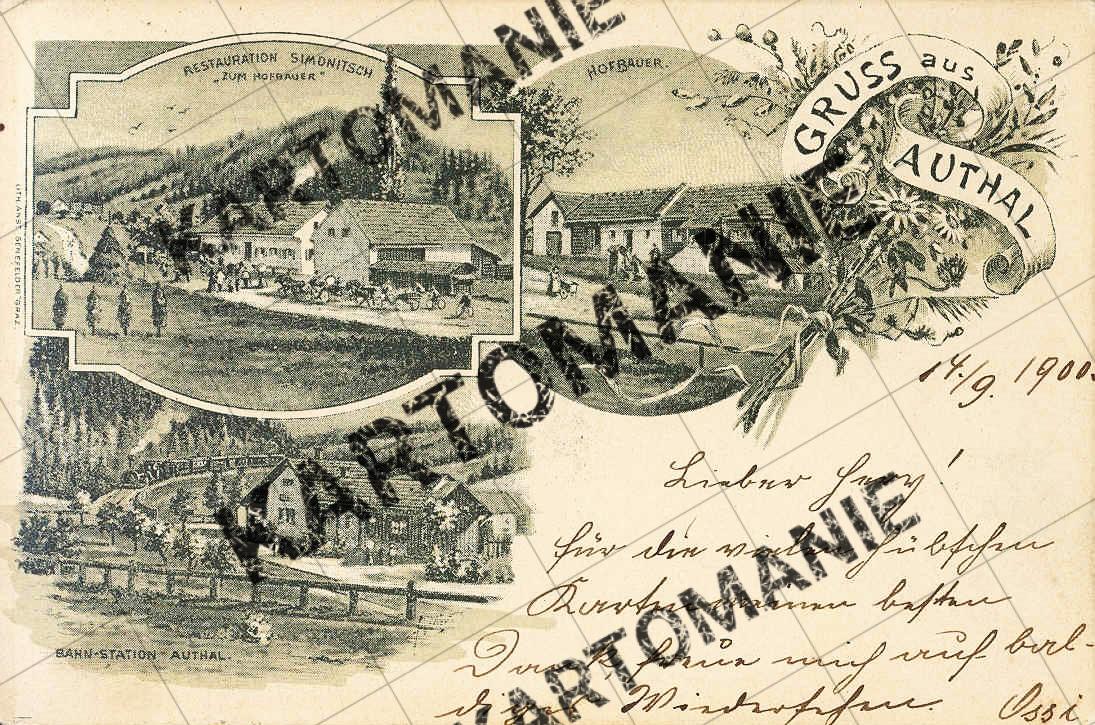 RESTAURATION SIMONITSCH
„ZUM HOFBAUER"
HOFBAUER.
GRUSS aus
AUTHAL
LITH. ANST. SENEFELDER GRAZ.
BAHN-STATION AUTHAL.
14./9. 1900.
Lieber !
für die vielen hübschen
Karten meinen besten
Dank, freue mich auf bal-
diges Wiedersehen. Ossi
KARTOMANIE
KARTOMANIE
KARTOMANIE